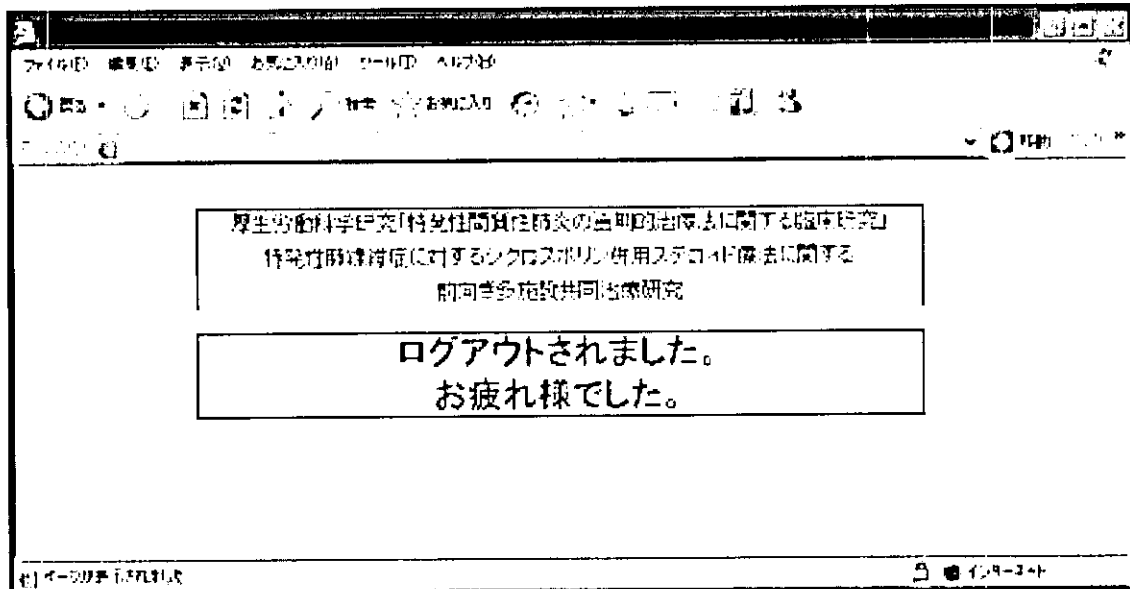 ファイル(F) 編集(E) 表示(V) お気に入り(A) ツール(T) ヘルプ(H)
戻る 検索 お気に入り
移動
厚生労働科学研究「特発性間質性肺炎の画期的治療法に関する臨床研究」
特発性肺線維症に対するシクロスポリン併用ステロイド療法に関する
前向き多施設共同治療研究
ログアウトされました。
お疲れ様でした。
ページが表示されました
インターネット